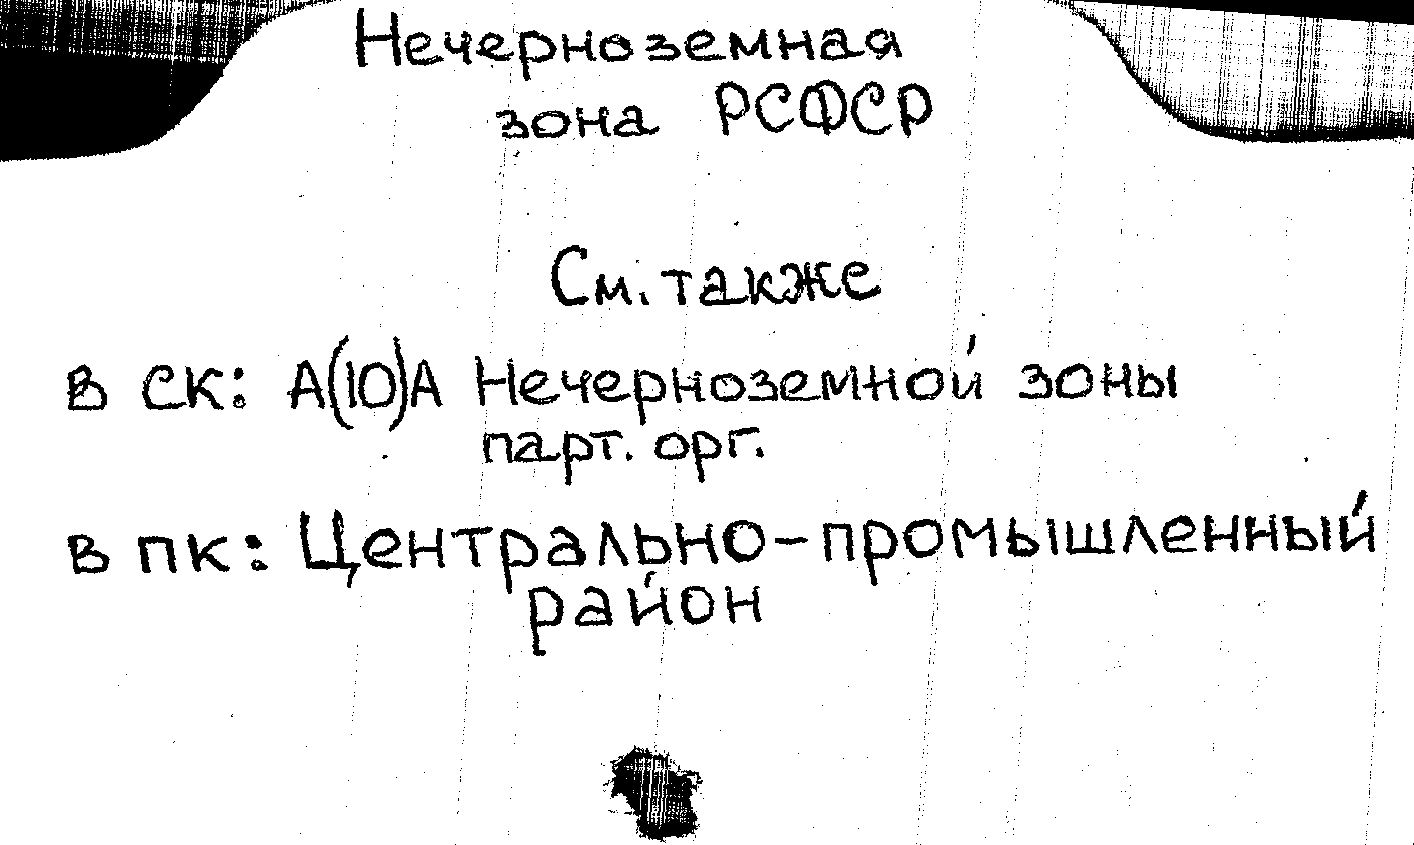 Нечерноземная
зона РСФСР
См. также
в ск: А(10)А Нечерноземной зоны
парт. орг.
в пк: Центрально-промышленный
район